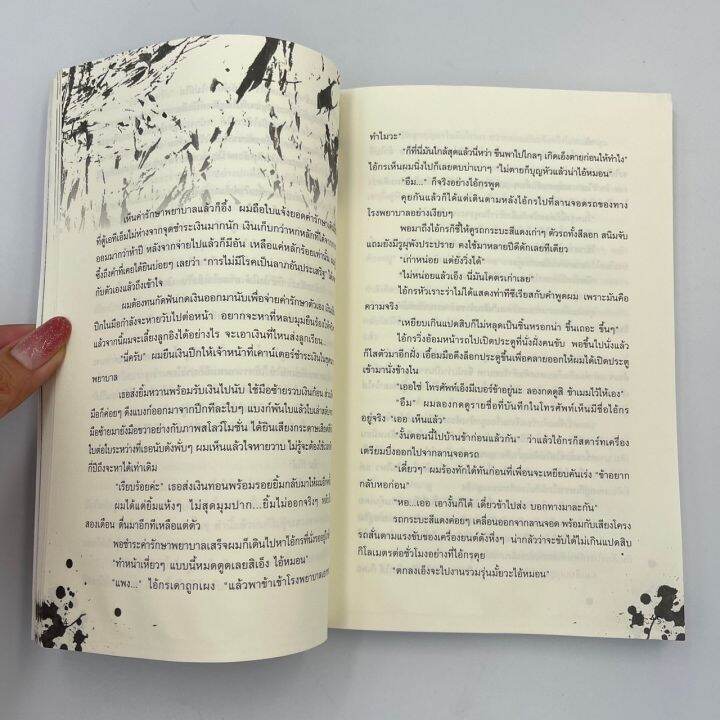 เห็นค่ารักษาพยาบาลแล้วก็อึ้ง ผมถือใบแจ้งยอดค่ารักษา
ที่ตู้เอทีเอ็มไม่ห่างจากจุดชำระเงินมากนัก เงินเก็บกว่าหกหลักที่ได้จาก
ออมมากว่าห้าปี หลังจากจ่ายไปแล้วก็มีอัน เหลือแค่หลักร้อยเท่านั้น
ซึ้งถึงคำที่เคยได้ยินบ่อยๆ เลยว่า “การไม่มีโรคเป็นลาภอันประเสริฐ”
กับตัวเองแล้วถึงเข้าใจ
ผมต้องทนกัดฟันกดเงินออกมานับเพื่อจ่ายค่ารักษาตัวเอง
ปึกในมือกำลังจะหายวับไปต่อหน้า อยากจะหาหลบมุมยืนร้องไห้
แล้วจากนี้ผมจะเลี้ยงลูกอิงได้อย่างไร จะเอาเงินที่ไหนส่งลูกเรียน...
“นี่ครับ” ผมยืนเงินปึกให้เจ้าหน้าที่เคาน์เตอร์ชำระเงิน
พยาบาล
เธอส่งยิ้มหวานพร้อมรับเงินไปนับ ใช้มือซ้ายรวบเงินก่อน
มือก็ค่อยๆ ดึงแบงก์ออกมาจากปึกทีละใบๆ แบงก์พันใบแล้วใบเล่า
มือซ้ายมายังมือขวาอย่างกับภาพสโลว์โมชั่น ได้ยินเสียงกระดาษเสียดสี
ใบต่อใบระหว่างที่เธอนับดังพั่บๆ ผมเห็นแล้วใจหายวาบ ไม่รู้จะต้องใช้เวลา
กี่ปีถึงจะหาได้เท่าเดิม
“เรียบร้อยค่ะ” เธอส่งเงินทอนพร้อมรอยยิ้มกลับมาให้ผม
ผมได้แต่ยิ้มแห้งๆ ไม่สุดมุมปาก...ยิ้มไม่ออกจริงๆ
สองเดือน ตื่นมาอีกทีเหลือแต่ตัว
พอชำระค่ารักษาพยาบาลเสร็จผมก็เดินไปหาไอ้กรที่นั่งรออยู่
“ทำหน้าเหี่ยวๆ แบบนี้หมดตูดเลยสิเอ็ง ไอ้หมอน”
“แพง...” ไอ้กรเดาถูกเผง “แล้วพาข้าเข้าโรงพยาบาล
ทำไมวะ”
“ก็ที่นี่มันใกล้สุดแล้วนี่หว่า ขืนพาไปไกลๆ เกิดเอ็งตายก่อนให้ทำไง”
ไอ้กรเห็นผมนิ่งไปก็เลยตบบ่าเบาๆ “ไม่ตายก็บุญหัวแล้วน่าไอ้หมอน”
“อืม...” ก็จริงอย่างไอ้กรพูด
คุยกันแล้วก็ได้แต่เดินตามหลังไอ้กรไปที่ลานจอดรถของทาง
โรงพยาบาลอย่างเงียบๆ
พอมาถึงไอ้กรก็ชี้ให้ดูรถกระบะสีแดงเก่าๆ ตัวรถทั้งสีลอก สนิมจับ
แถมยังมีรูผุพังประปราย คงใช้มาหลายปีดีดักเลยทีเดียว
“เก่าหน่อย แต่ยังวิ่งได้”
“ไม่หน่อยแล้วเอ็ง นี่มันโคตรเก่าเลย”
ไอ้กรหัวเราะร่าไม่ได้แสดงท่าทีซีเรียสกับคำพูดผม เพราะมันคือ
ความจริง
“เหยียบเกินแปดสิบก็ไม่หลุดเป็นชิ้นหรอกน่า ขึ้นเถอะ ขึ้นๆ”
ไอ้กรวิ่งอ้อมหน้ารถไปเปิดประตูที่นั่งฝั่งคนขับ พอขึ้นไปนั่งแล้ว
ก็ไสตัวมาอีกฝั่ง เอื้อมมือดึงล็อกประตูขึ้นเพื่อคลายออกให้ผมได้เปิดประตู
เข้ามานั่งข้างใน
“เออใช่ โทรศัพท์เอ็งมีเบอร์ข้าอยู่นะ ลองกดดูสิ ข้าเมมไว้ให้เอง”
“อืม” ผมลองกดดูรายชื่อที่บันทึกในโทรศัพท์เห็นมีชื่อไอ้กร
อยู่จริง “เออ เห็นแล้ว”
“งั้นตอนนี้ไปบ้านข้าก่อนแล้วกัน” ว่าแล้วไอ้กรก็สตาร์ทเครื่อง
เตรียมบึ่งออกไปจากลานจอดรถ
“เดี๋ยวๆ” ผมร้องทักได้ทันก่อนที่เพื่อนจะเหยียบคันเร่ง “ข้าอยาก
กลับหอก่อน”
“หอ...เออ เอางั้นก็ได้ เดี๋ยวข้าไปส่ง บอกทางมาละกัน”
รถกระบะสีแดงค่อยๆ เคลื่อนออกจากลานจอด พร้อมกับเสียงโครง
รถสั่นตามแรงขับของเครื่องยนต์ดังหึ่งๆ น่ากลัวว่าจะขับได้ไม่เกินแปดสิบ
กิโลเมตรต่อชั่วโมงอย่างที่ไอ้กรคุย
“ตกลงเอ็งจะไปงานรวมรุ่นมั้ยวะไอ้หมอน”